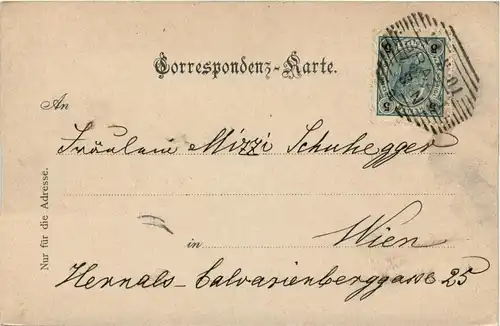 Correspondenz-Karte.
An
Fräulein Mizzi Schuhegger
in Wien
Hernals-Calvarienberggasse 25
Nur für die Adresse.
5 5